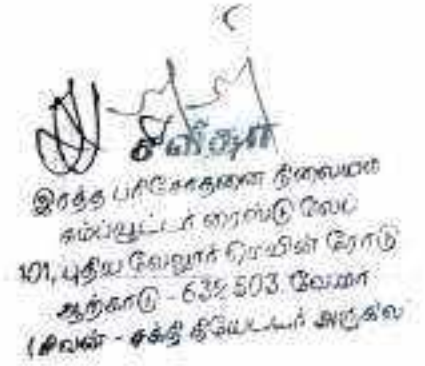 சவிதா
இரத்த பரிசோதனை நிலையம்
கம்ப்யூட்டர் ரைஸ்டு லேப்
101, புதிய வேலூர் மெயின் ரோடு
ஆற்காடு - 632 503. வேமா
(சிவன் - சக்தி தியேட்டர் அருகில்